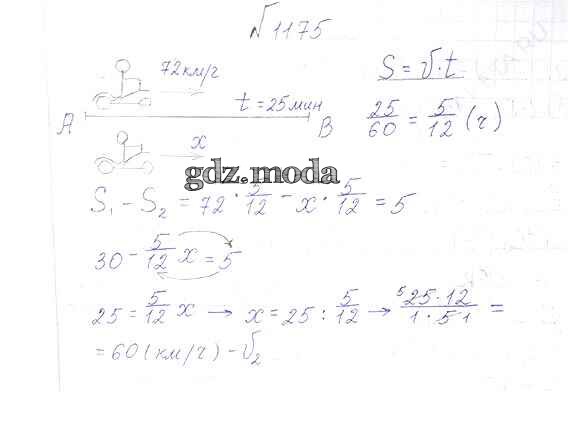 №1175
72км/г
S = v·t
t = 25мин
25/60 = 5/12 (г)
A
B
x
gdz.moda
S₁ - S₂ = 72 · 5/12 - x · 5/12 = 5
30 - 5/12 x = 5
25 = 5/12 x → x = 25 : 5/12 → ⁵25·12/1·51 =
= 60(км/г) - v₂